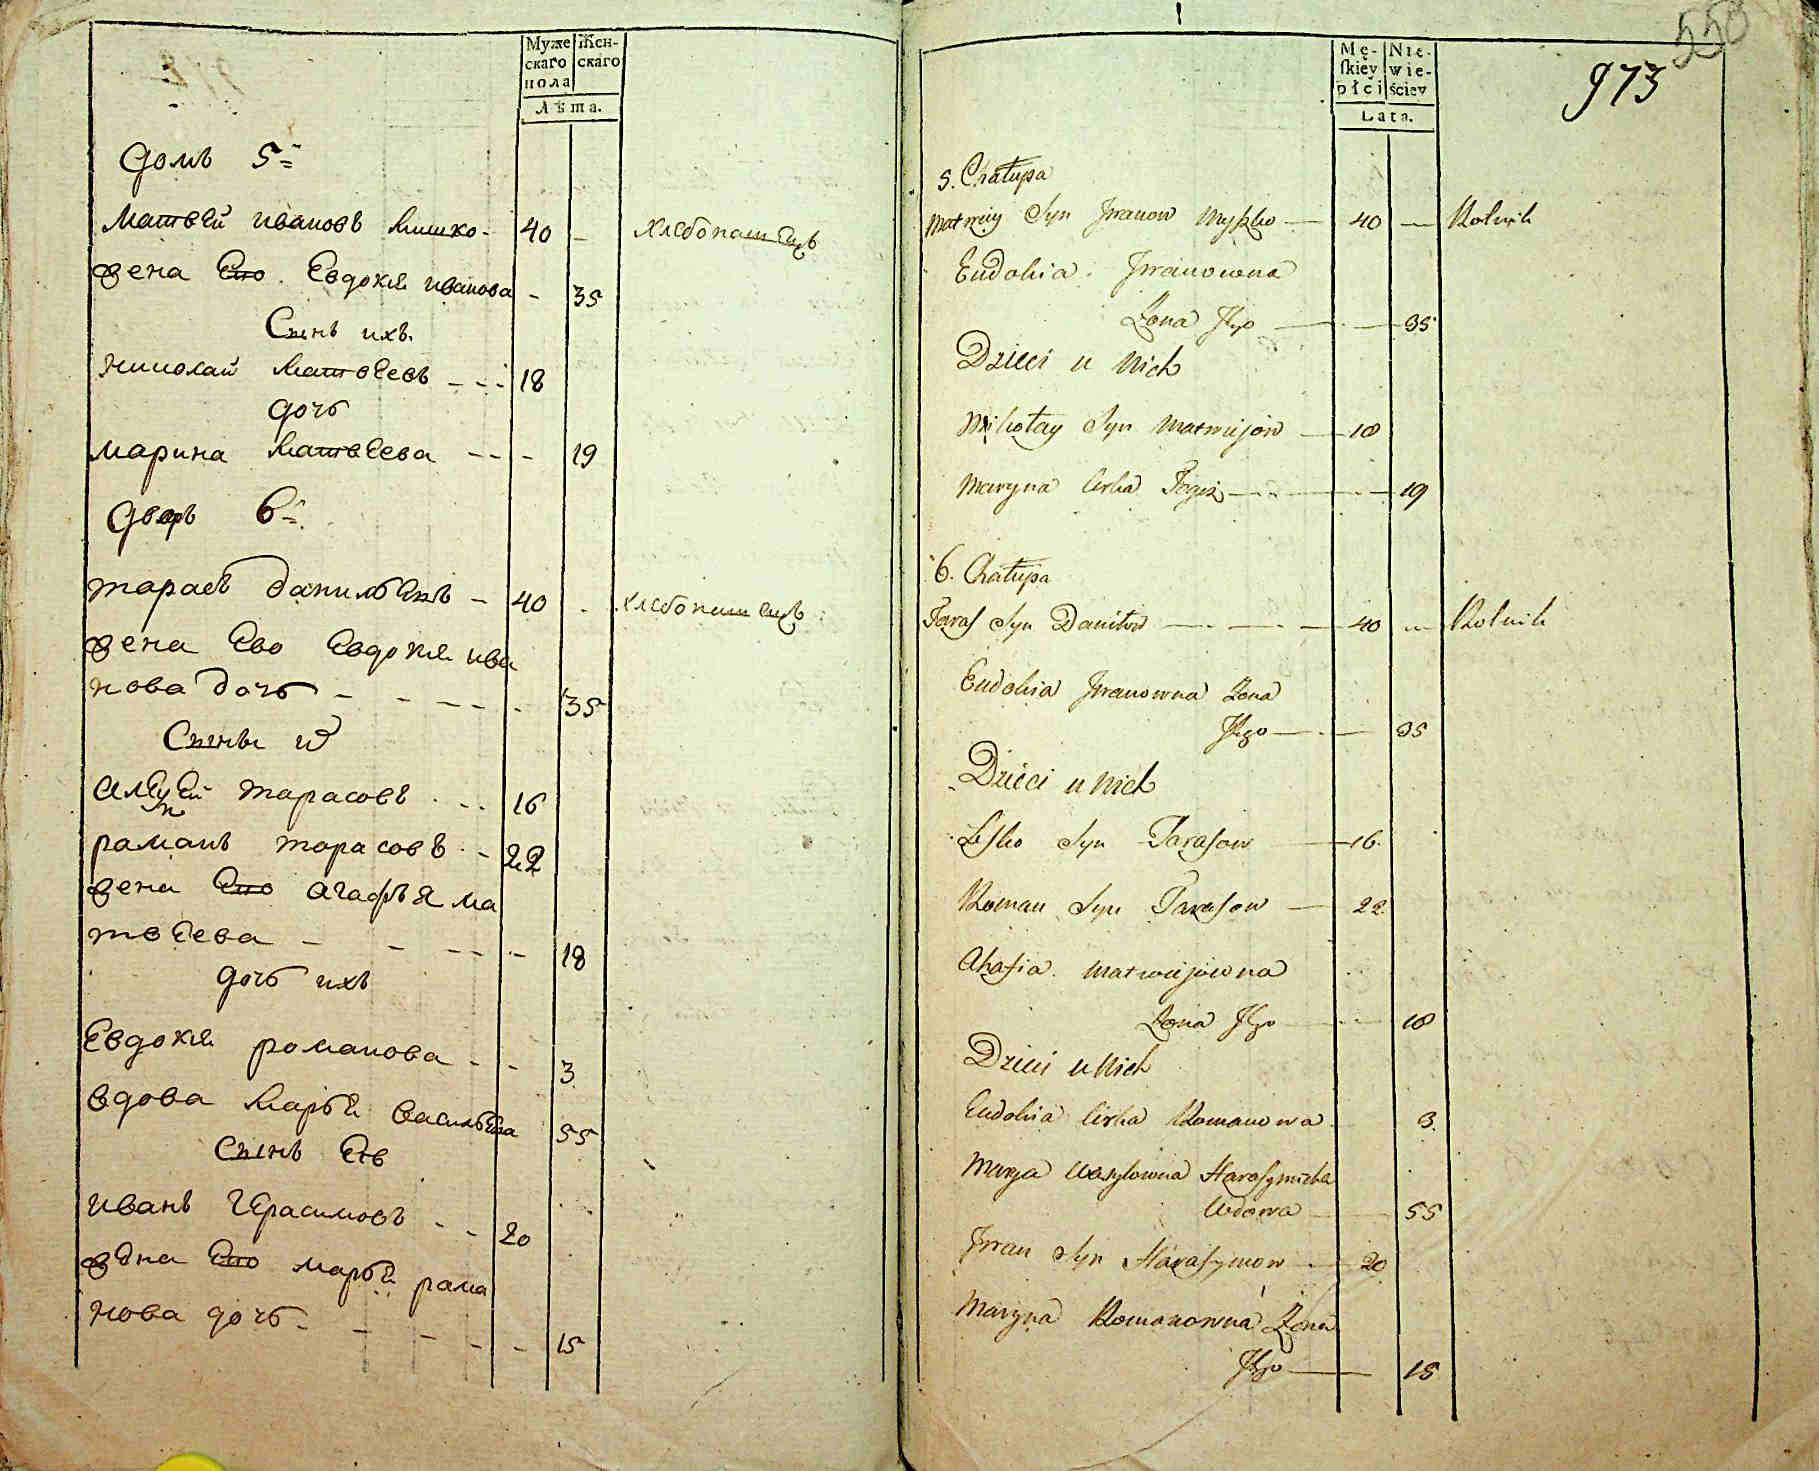 Муже
скаго
пола
Жен-
скаго
Лѣта.
Домъ 5=
Матвей ивановъ Мишко - 40 - хлебопашецъ
жена Его Евдокия иванова - 35
Сынъ ихъ
николай Матвеевъ - - - 18
дочь
марина Матвеева - - - 19
Дворъ 6=
тарасъ данильевъ - 40 - хлебопашецъ
жена Ево Евдокия ива
нова дочь - - - - - 35
Сыны их
алексей тарасовъ - - - 16
раманъ тарасовъ - - 22
жена Его агафья ма
твеева - - - - - 18
дочь ихъ
Евдокия романова - - 3
вдова Марья васильева 55
Сынъ Ев
иванъ герасимовъ - - 20
жена Его марья рама
нова дочь - - - - - 15
550
973
Mę-
ſkiey
płci
Nie-
wie-
ściey
Lata.
5. Chałupa
Matwiey Syn Jwanow Myszko — 40 — Rolnik
Eudokia Jwanowna
Żona Jego — — 35
Dzieci u Nich
Mikołay Syn Matwiejow — 18
Maryna Corka Tegoż — — 19
6. Chałupa
Taras Syn Daniłow — — — 40 — Rolnik
Eudokia Jwanowna Żona
Jego — — 35
Dzieci u Nich
Lesko Syn Tarasow — 16
Roman Syn Tarasow — 22
Ahafia Matwiejowna
Żona Jego — — 18
Dzieci u Nich
Eudokia Corka Romanowa 3
Marya Wasylowna Harasymicha
Wdowa — — 55
Jwan Syn Harasymow — 20
Maryna Romanowna Żona
Jego — — 15